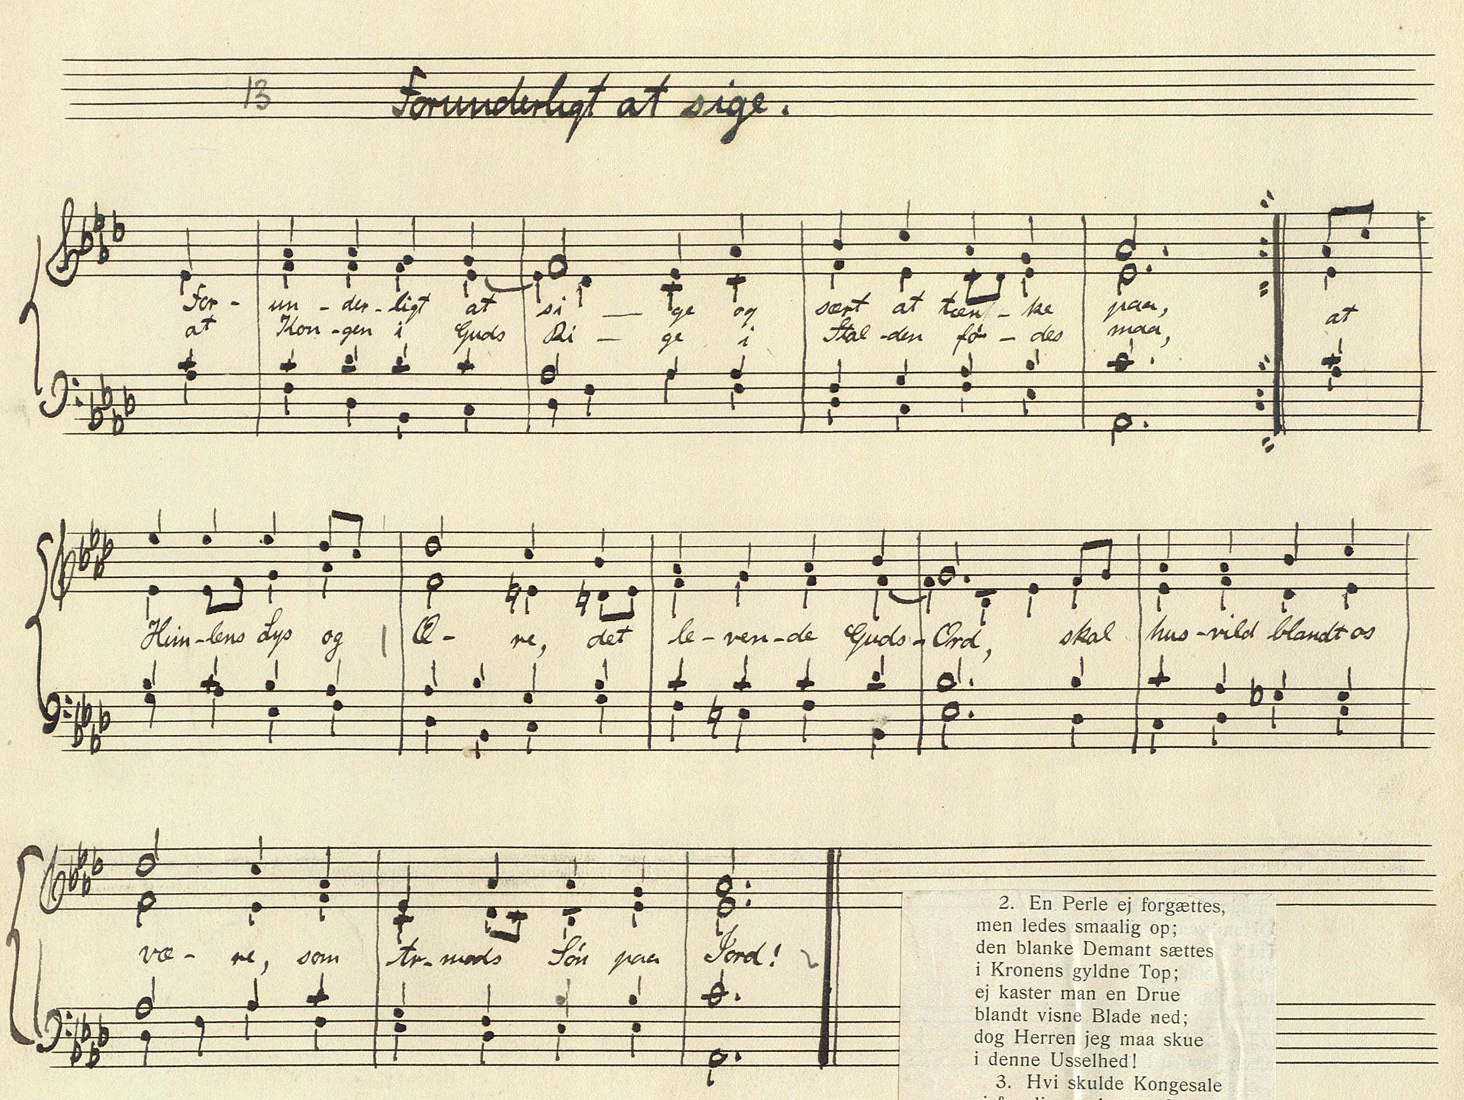 13 Forunderligt at sige.
For- un-der-ligt at si — ge og sært at tæn-ke paa, at
at Kon-gen i Guds Ri — ge i Stal-den fø-des maa,
Him-lens Lys og Æ- re, det le-ven-de Guds-Ord, skal hus-vild blandt os
væ- re, som Ar-mods Søn paa Jord!
2. En Perle ej forgættes,
men ledes smaalig op;
den blanke Demant sættes
i Kronens gyldne Top;
ej kaster man en Drue
blandt visne Blade ned;
dog Herren jeg maa skue
i denne Usselhed!
3. Hvi skulde Kongesale